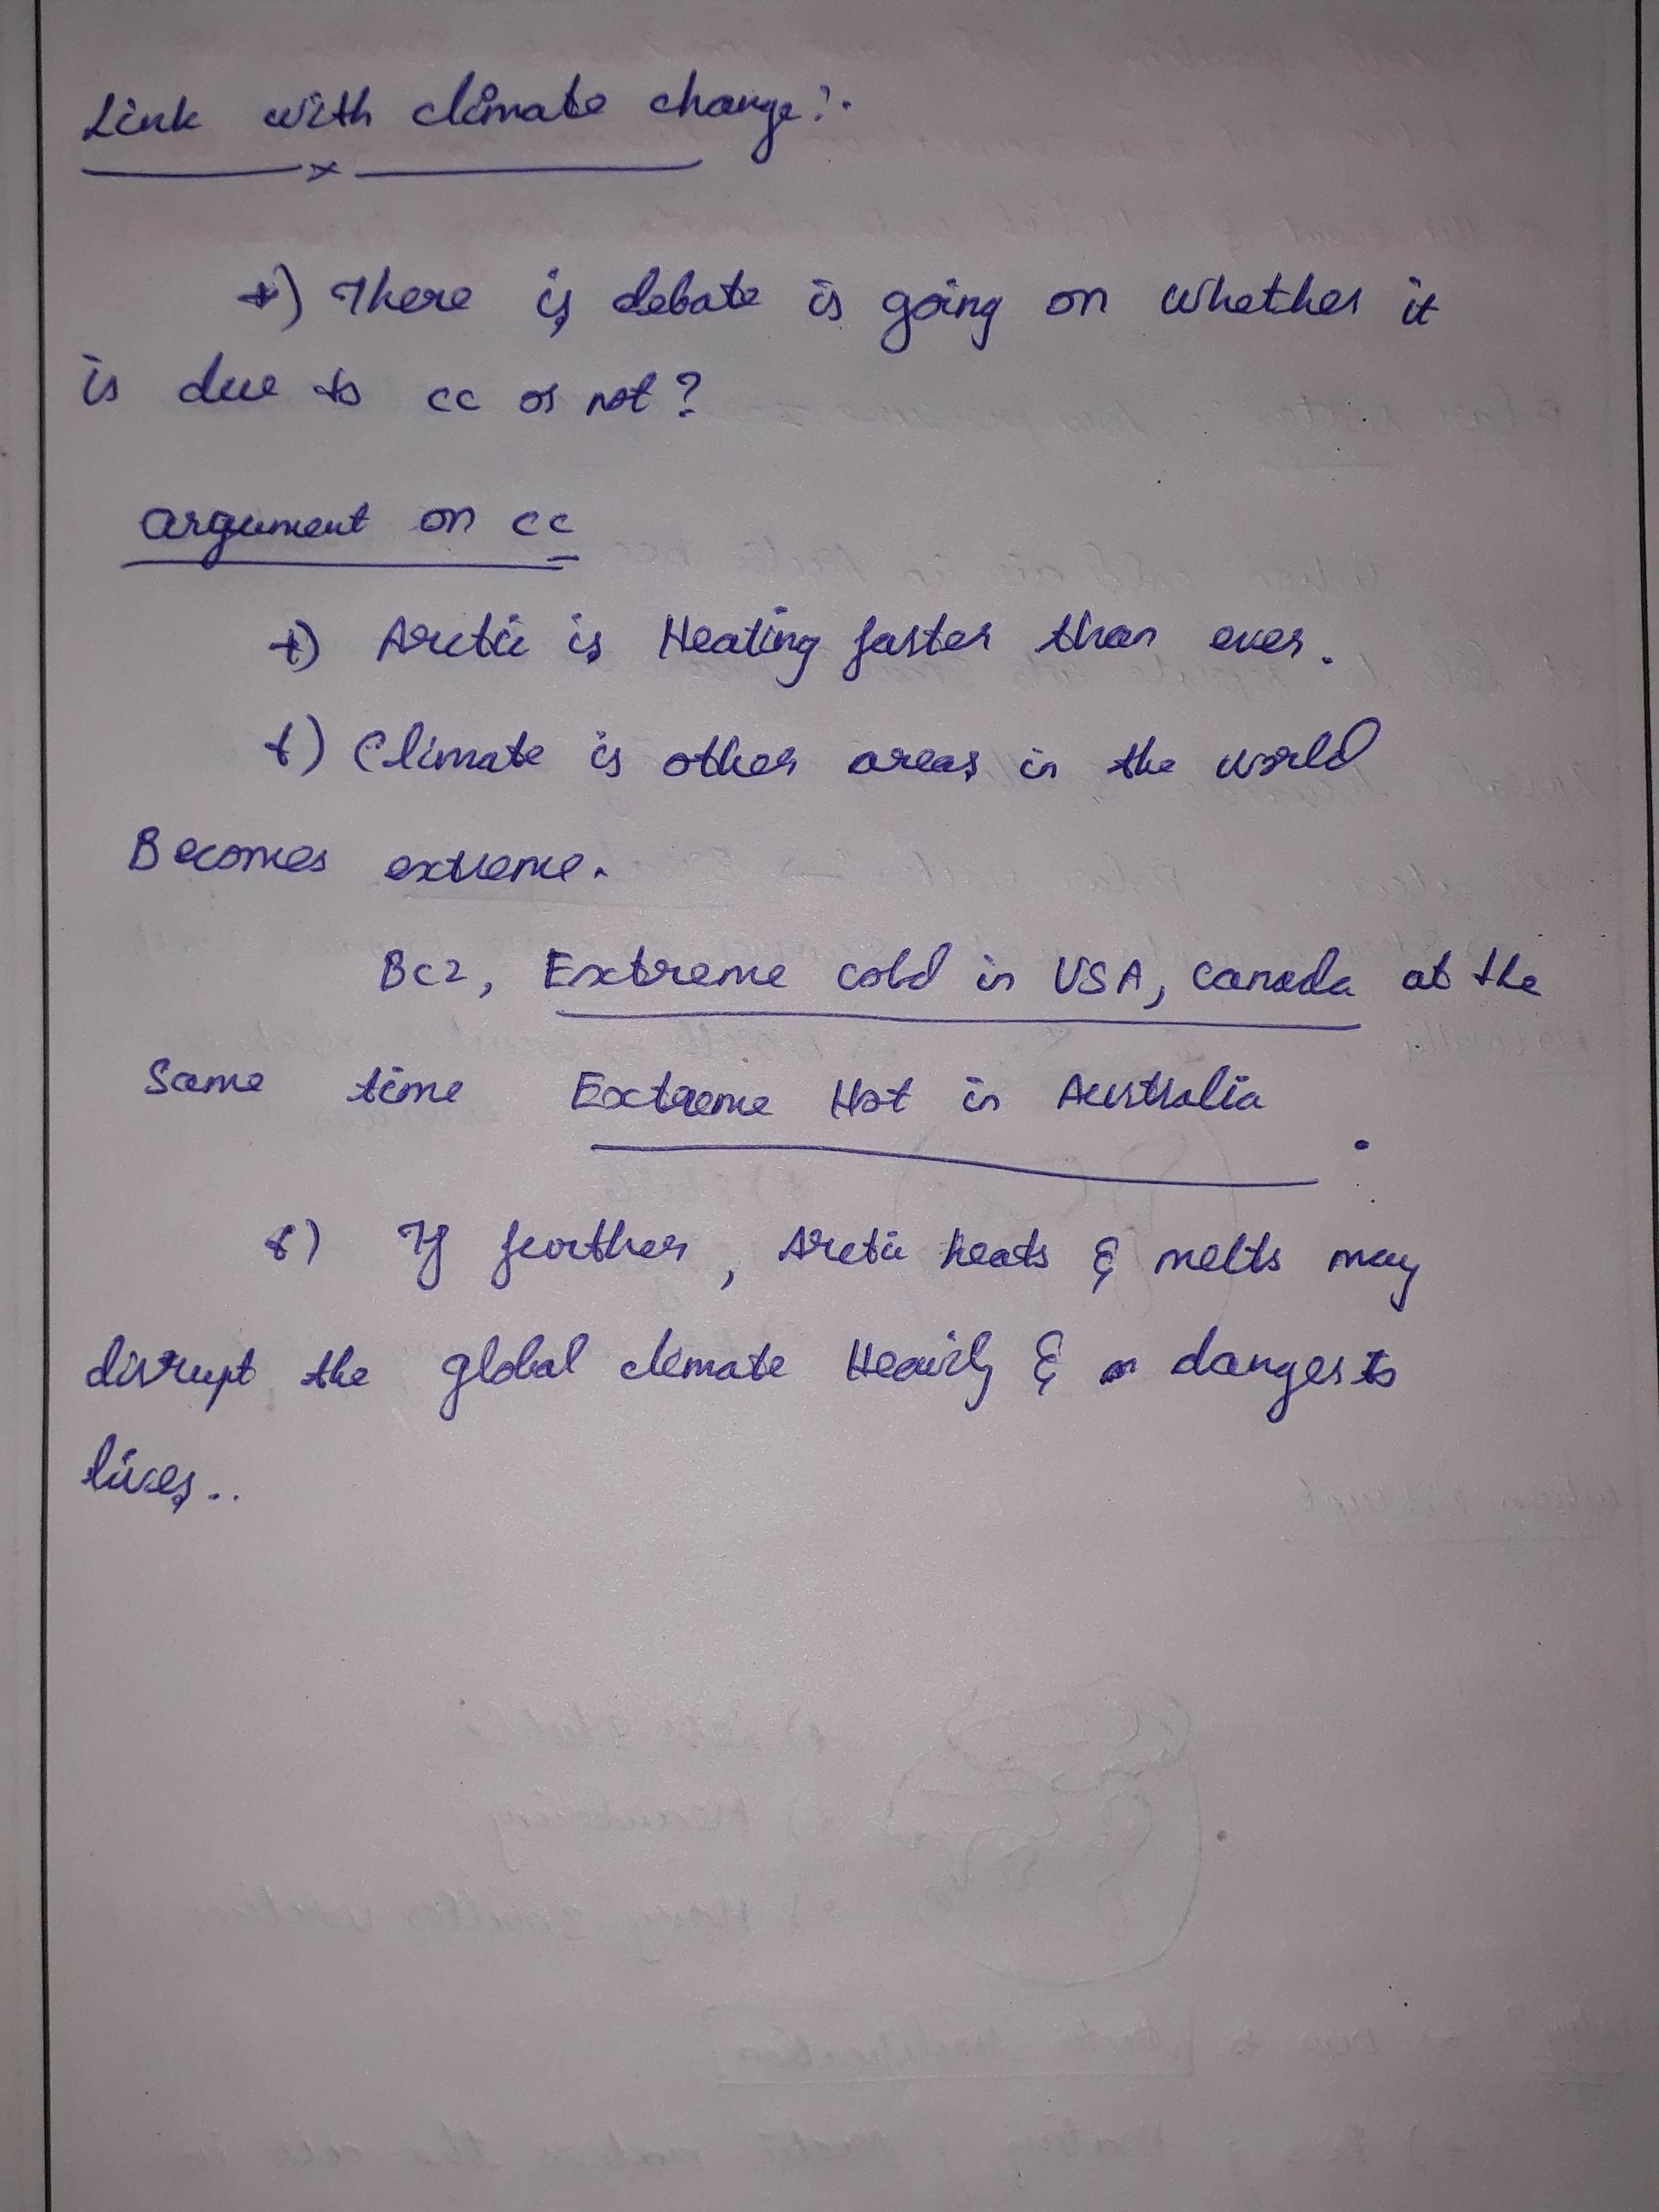 Link with climate change:-
*) There is debate is going on whether it
is due to cc or not?
argument on cc
*) Arctic is Heating faster than ever.
*) Climate is other areas in the world
Becomes extreme.
Bcz, Extreme cold in USA, Canada at the
Same time Extreme Hot in Australia.
*) If further, Arctic heats & melts may
disrupt the global climate Heavily & danger to
lives..